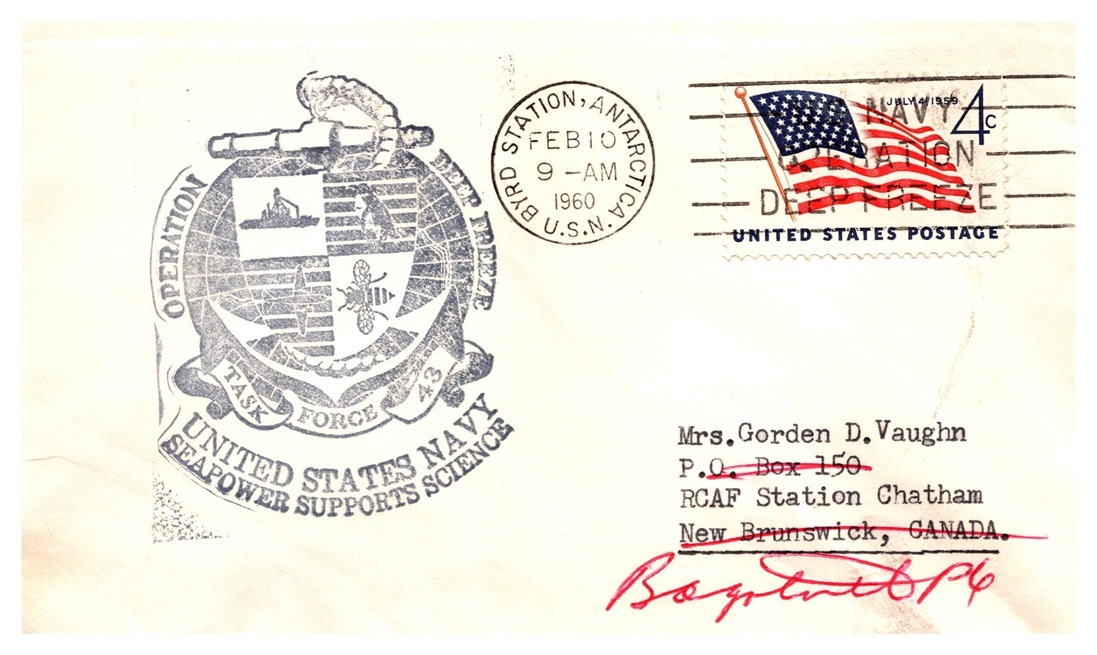 OPERATION DEEP FREEZE
TASK FORCE 43
UNITED STATES NAVY
SEAPOWER SUPPORTS SCIENCE
BYRD STATION, ANTARCTICA
FEB 10
9 -AM
1960
U.S.N.
JULY 4, 1959
4c
NAVY
OPERATION
DEEP FREEZE
UNITED STATES POSTAGE
Mrs.Gorden D.Vaughn
P.O. Box 150
RCAF Station Chatham
New Brunswick, CANADA.